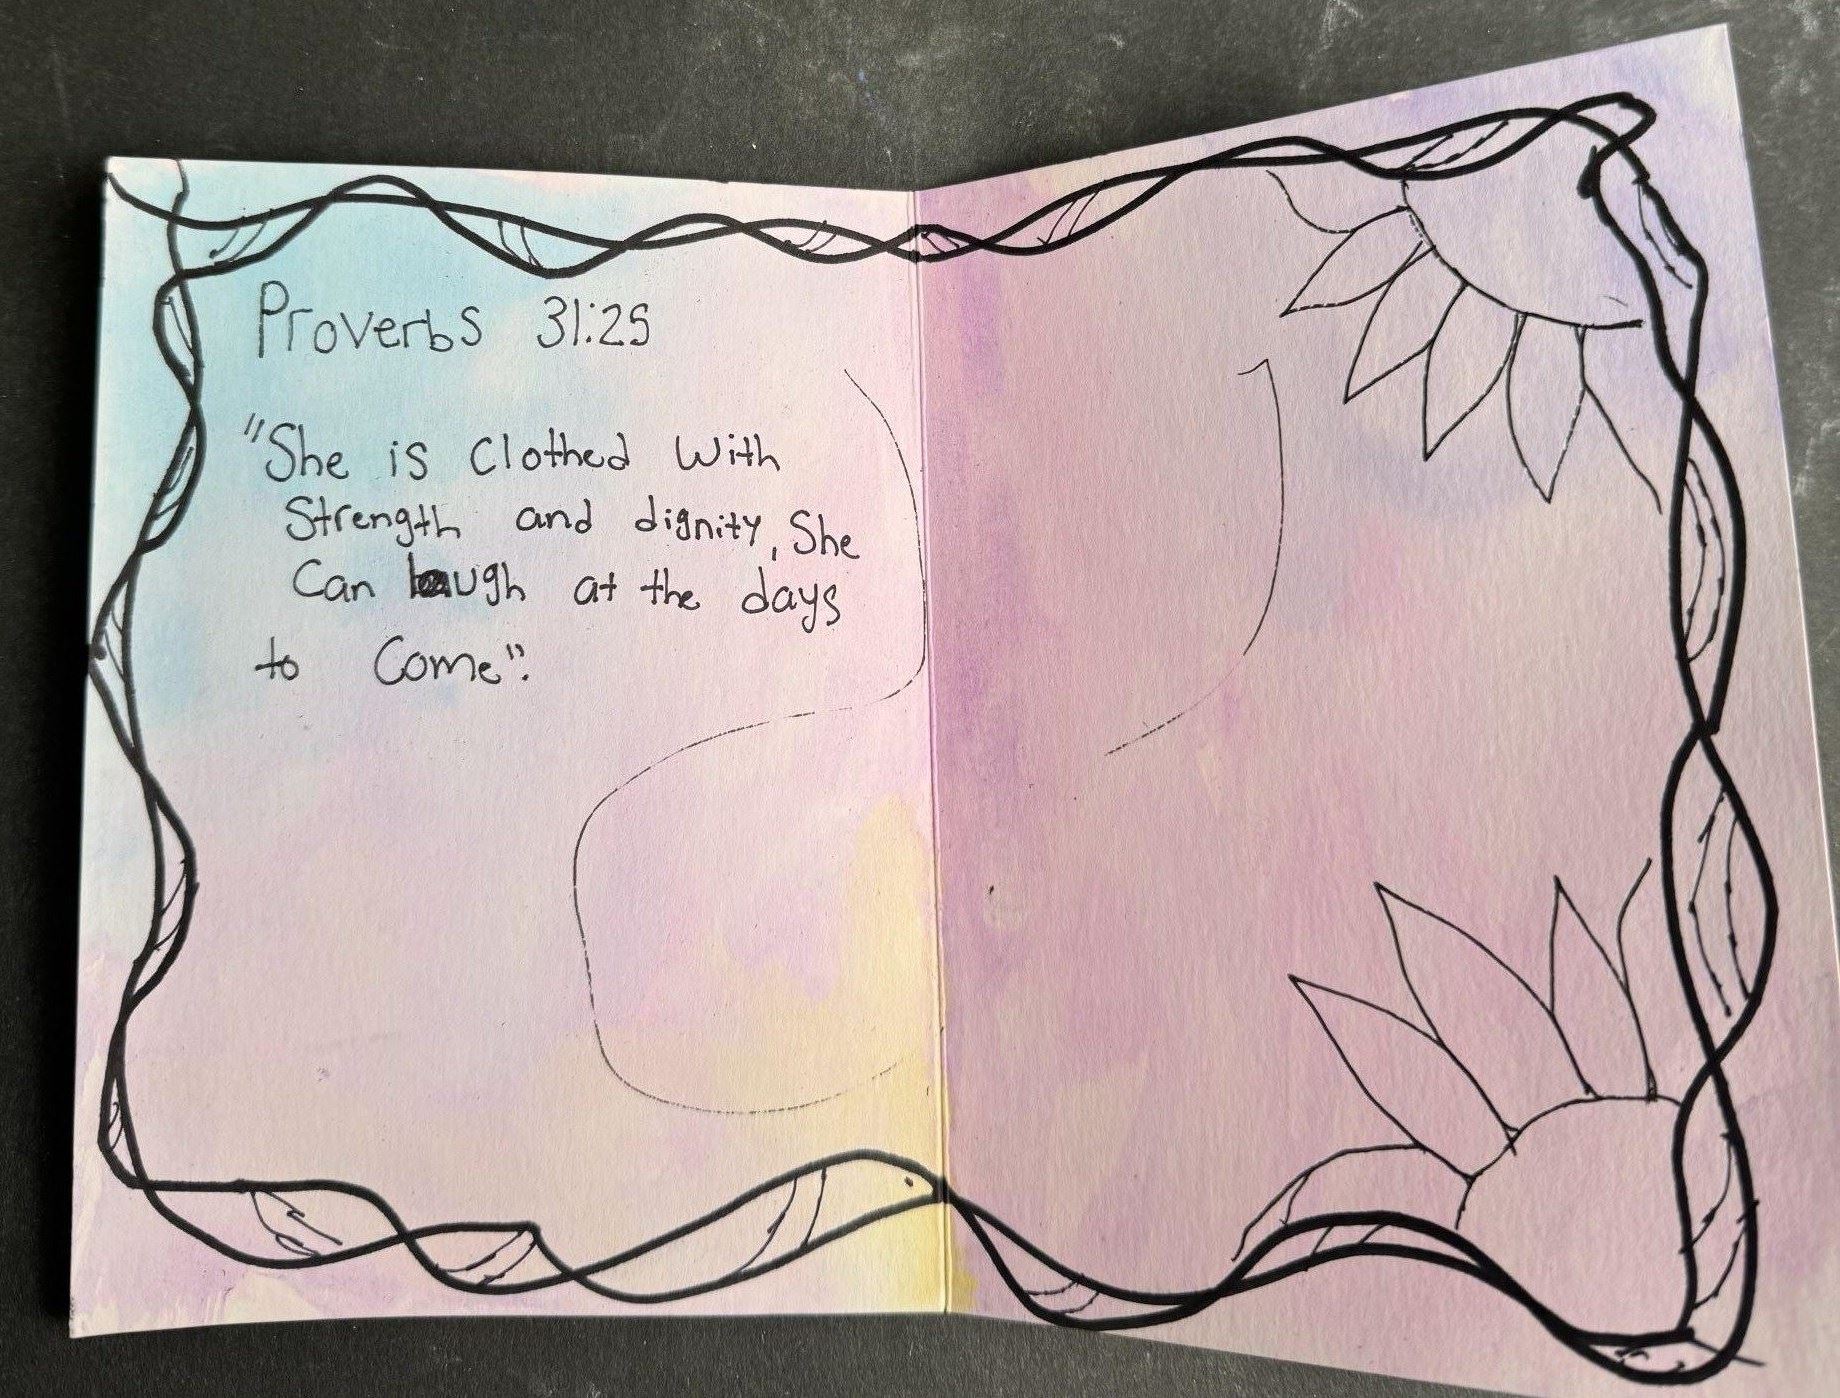 Proverbs 31:25
"She is clothed with
Strength and dignity, She
Can laugh at the days
to Come".